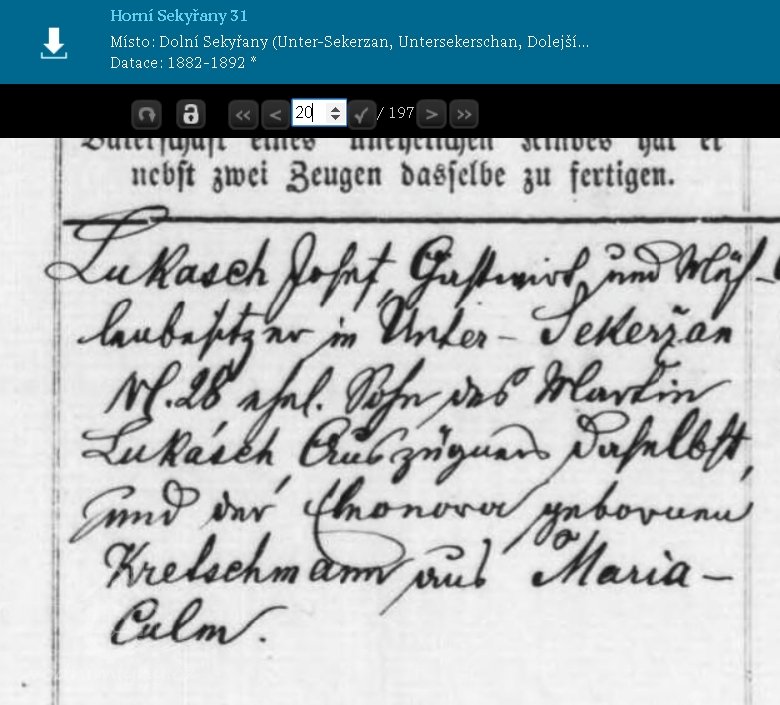 Horní Sekyřany 31
Místo: Dolní Sekyřany (Unter-Sekerzan, Untersekerschan, Dolejší...
Datace: 1882-1892 *
20 / 197
Vaterschaft eines unehelichen Kindes hat er
nebst zwei Zeugen dasselbe zu fertigen.
Lukasch Josef, Gastwirt und
in Unter-Sekeržan
N. 28 ehel. Sohn des Martin
Lukásch, Auszüglers daselbst,
und der Eleonora gebornen
Kretschmann aus Maria-
Culm.